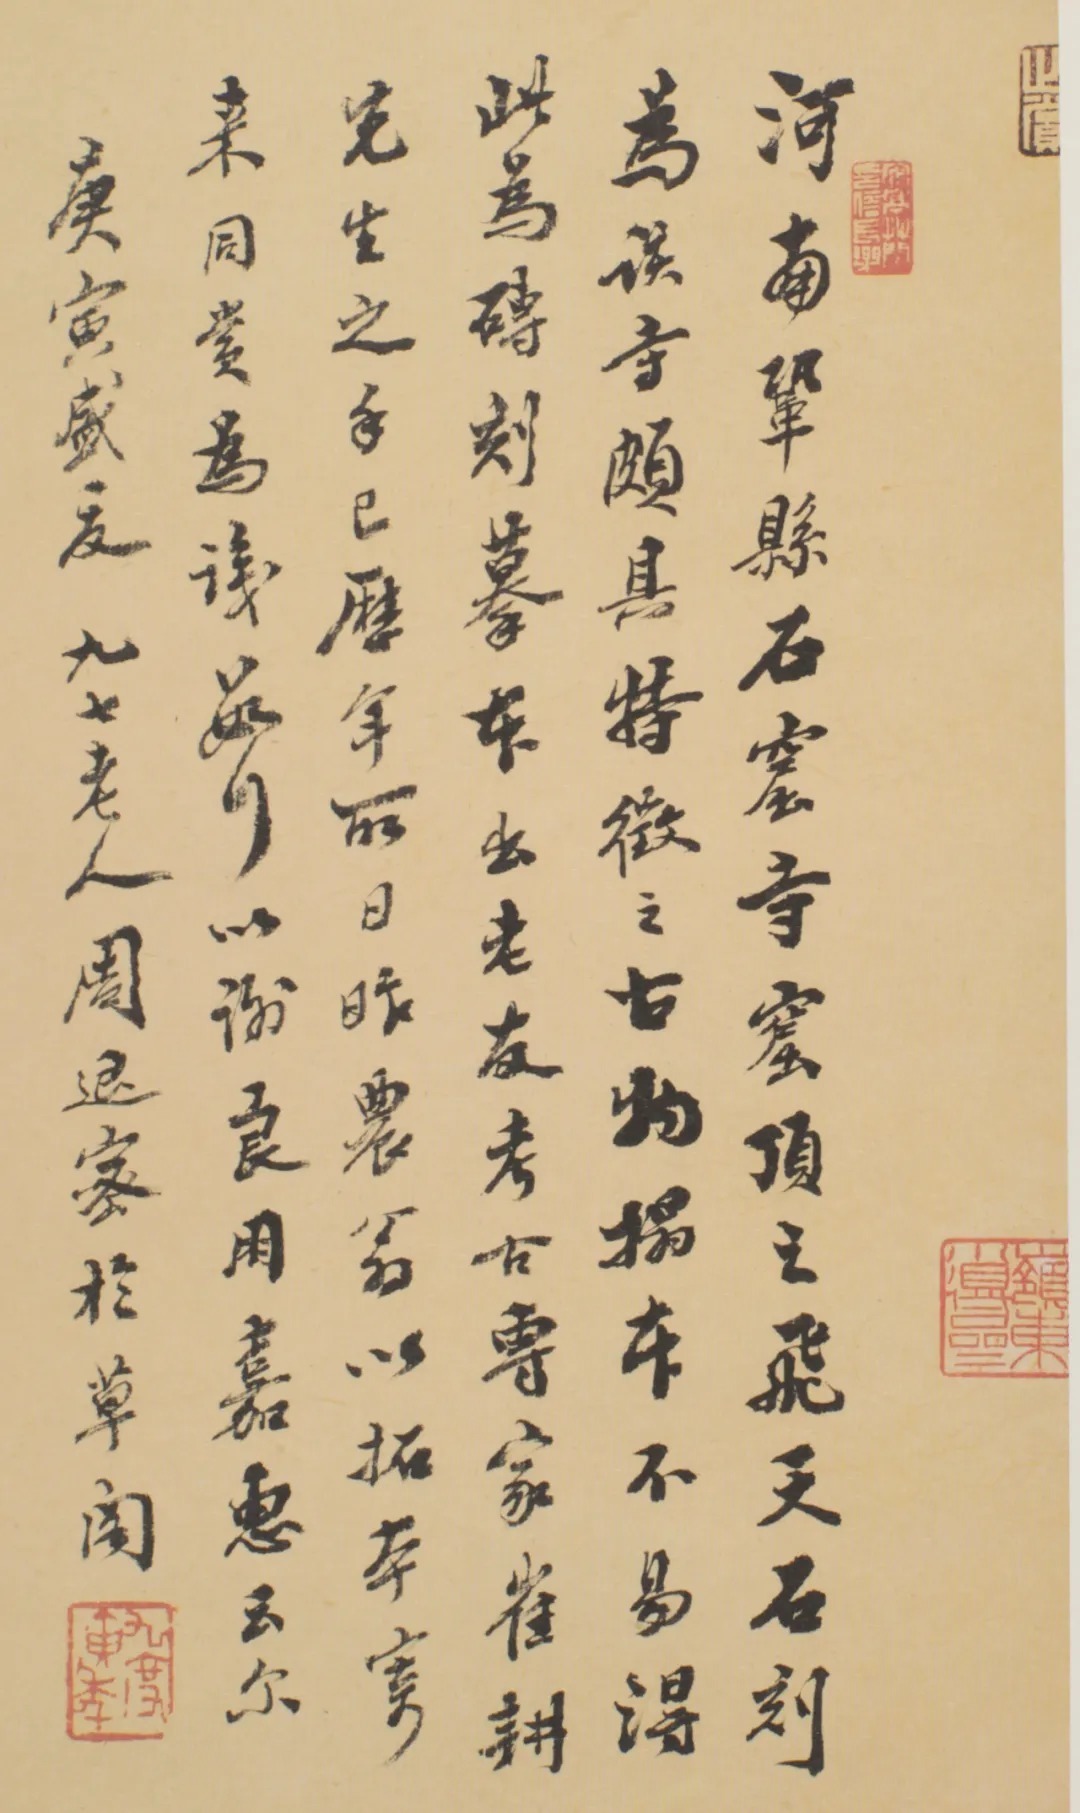 河南鞏縣石窟寺窟頂之飛天石刻
為該寺頗具特徵之古物搨本不易得
此為磚刻摹本出老友考古專家崔耕
先生之手已歷年所日昨農翁以拓本寄
来同賞為識數行以謝良朋嘉惠云尔
庚寅盛夏 九七老人周退密於草閣